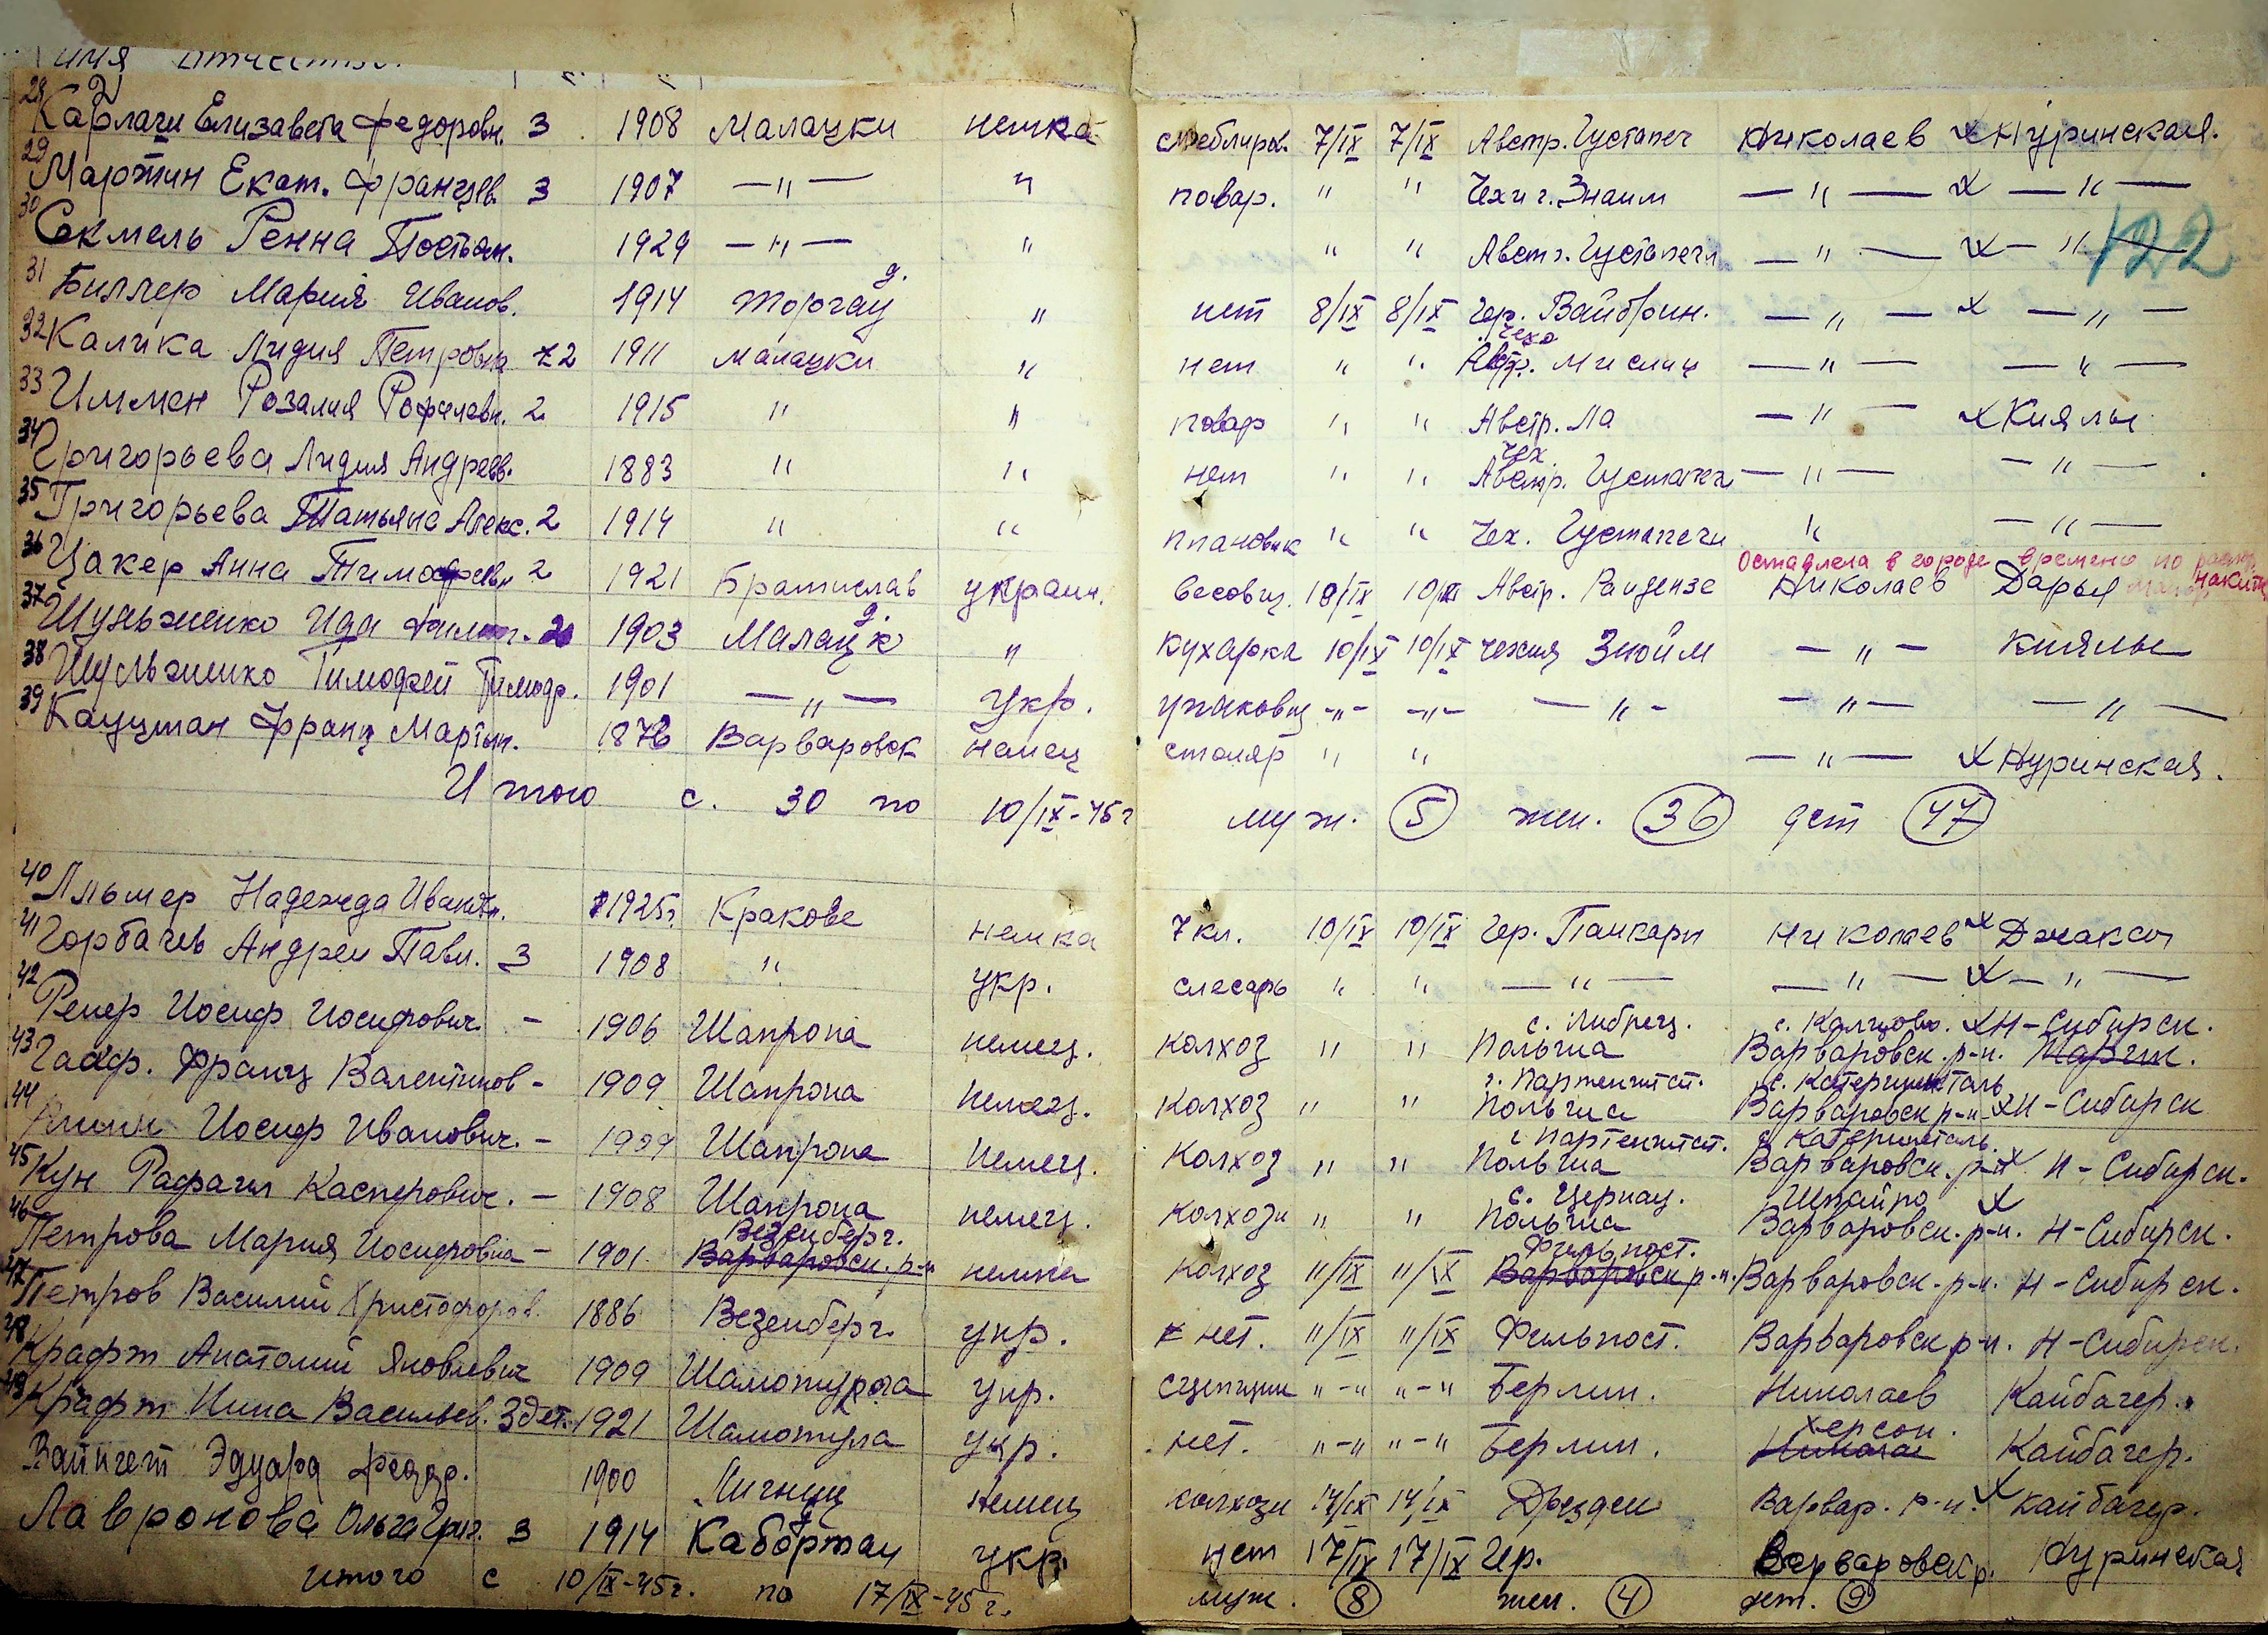 имя отчество.
28 Карлаги Елизавета Федоровн. 3 1908 Малацки немка 7/IX 7/IX Австр. Густапеч Николаев х Нуринская.
29 Мартин Екат. Францев. 3 1907 —"— " повар. " " Чехи г. Знаим —"— х —"—
30 Секмель Ренна 1929 —"— " " " Австр. Густапечи —"— х —"—
122
31 Биллер Мария Иванов. 1914 г. Торгау " нет 8/IX 8/IX Гер. —"— х —"—
32 Калика Лидия Петровна 2 1911 Малацки " нет " " Чехо Мислич —"— —"—
33 Иммен Розалия Рафалевн. 2 1915 " " повар " " Австр. Ла —"— х Киялы
34 Григорьева Лидия Андреев. 1883 " " нет " " Чех. Австр. Густапечи —"— —"—
35 Григорьева Татьяна Алекс. 2 1914 " " плановик " " Чех. Густапечи " —"—
Оставлена в городе временно по расп.
36 Цакер Анна Тимофеевн 2 1921 Братислав украин. весовщ. 10/IX 10/IX Австр. Николаев Дарья
37 Шульженко Ида Филип. 2 1903 г. Малацк " кухарка 10/IX 10/IX Чехия Зноим —"— Киялы
38 Шульженко Тимофей Тимофр. 1901 —"— укр. упаковщ —"— —"— —"— —"— —"—
39 Кауцман Франц Мартын. 1876 Варваровск немец столяр " " —"— х Нуринская.
Итого с. 30 по 10/IX-45 г муж. 5 жен. 36 дет 47
40 Альмер Надежда Ивановн. 1925 г. Кракове немка 7 кл. 10/IX 10/IX Гер. Панкари Николаев х Джаксы
41 Горбачев Андрей Павл. 3 1908 " укр. слесарь " " —"— —"— х —"—
42 Репер Иосиф Иосифович - 1906 Шапрона немец. колхоз " " с. Либрец. Польша с. Калцово. Варваровск. р-н. х Н-Сибирск.
43 Гааф. Франц Валентинов - 1909 Шапрона немец. колхоз " " г. Партенштат. Польша с. Катериненталь Варваровск р-н х Н-Сибирск
44 Иосиф Иванович. - 1909 Шапрона немец. колхоз " " г. Партенштат. Польша с. Катериненталь. Варваровск. р-н х Н-Сибирск.
45 Кун Рафаил Касперович. - 1908 Шапрона немец. колхозн " " с. Цернац. Польша Шпайро Варваровск. р-н. х Н-Сибирск.
46 Петрова Мария Иосифовна - 1901 Везенберг. Варваровск. р-н немка колхоз 11/IX 11/IX Фильпост. Варваровск р-н. Варваровск. р-н. Н-Сибирск.
47 Петров Василий Христофоров. 1886 Везенберг. укр. нет. 11/IX 11/IX Фильпост. Варваровск р-н. Н-Сибирск.
48 Крафт Анатолий Яковлевич 1909 Шамотурога укр. сцепщик "-" "-" Берлин. Николаев Кайбагер.
49 Крафт Нина Васильев. 3 дет. 1921 Шамотула укр. нет. "-" "-" Берлин. Херсон. Кайбагер.
Вайнгет Эдуард Федор. 1900 Лигниц немец колхозн 14/IX 14/IX Дрезден Варвар. р-н. х Кайбагер.
Лавронова Ольга Григ. 3 1914 Каботтау укр. нет 17/IX 17/IX Гер. Варваровск р. Нуринская
итого с 10/IX-45 г. по 17/IX-45 г. муж. 8 жен. 4 дет. 9